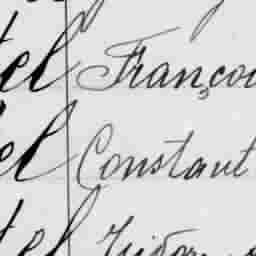 el Françoi
el Constant
el